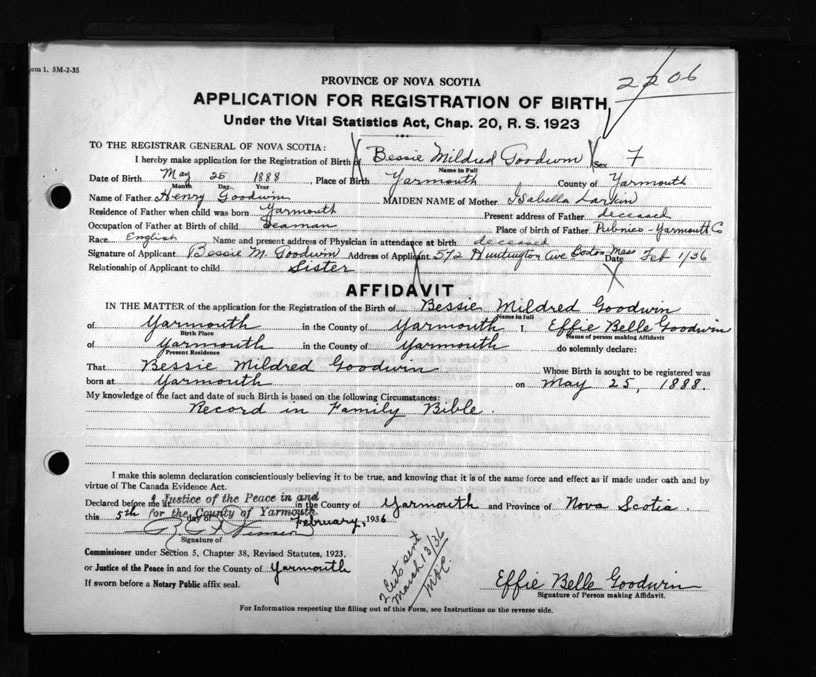 orm 1. 5M-2-35
2206
PROVINCE OF NOVA SCOTIA
APPLICATION FOR REGISTRATION OF BIRTH
Under the Vital Statistics Act, Chap. 20, R. S. 1923
TO THE REGISTRAR GENERAL OF NOVA SCOTIA:
I hereby make application for the Registration of Birth of Bessie Mildred Goodwin Sex F
Name in Full
Date of Birth May 25 1888, Place of Birth Yarmouth County of Yarmouth
Month Day Year
Name of Father Henry Goodwin MAIDEN NAME of Mother Isabella Larkin
Residence of Father when child was born Yarmouth Present address of Father deceased
Occupation of Father at Birth of child Seaman Place of birth of Father Pubnico - Yarmouth Co
Race English Name and present address of Physician in attendance at birth deceased
Signature of Applicant Bessie M. Goodwin Address of Applicant 572 Huntington Ave Boston Mass Date Feb 1/36
Relationship of Applicant to child Sister
AFFIDAVIT
IN THE MATTER of the application for the Registration of the Birth of Bessie Mildred Goodwin
Name in full
of Yarmouth in the County of Yarmouth I, Effie Belle Goodwin
Birth Place Name of person making Affidavit
of Yarmouth in the County of Yarmouth do solemnly declare:
Present Residence
That Bessie Mildred Goodwin Whose Birth is sought to be registered was
born at Yarmouth on May 25, 1888.
My knowledge of the fact and date of such Birth is based on the following Circumstances:
Record in Family Bible.
I make this solemn declaration conscientiously believing it to be true, and knowing that it is of the same force and effect as if made under oath and by
virtue of The Canada Evidence Act.
Declared before me at a Justice of the Peace in and in the County of Yarmouth and Province of Nova Scotia.
this 5th day of for the County of Yarmouth February, 1936
Signature of
Commissioner under Section 5, Chapter 38, Revised Statutes, 1923,
or Justice of the Peace in and for the County of Yarmouth
If sworn before a Notary Public affix seal.
2 Certs sent
March 13/36
Effie Belle Goodwin
Signature of Person making Affidavit.
For Information respecting the filling out of this Form, see Instructions on the reverse side.